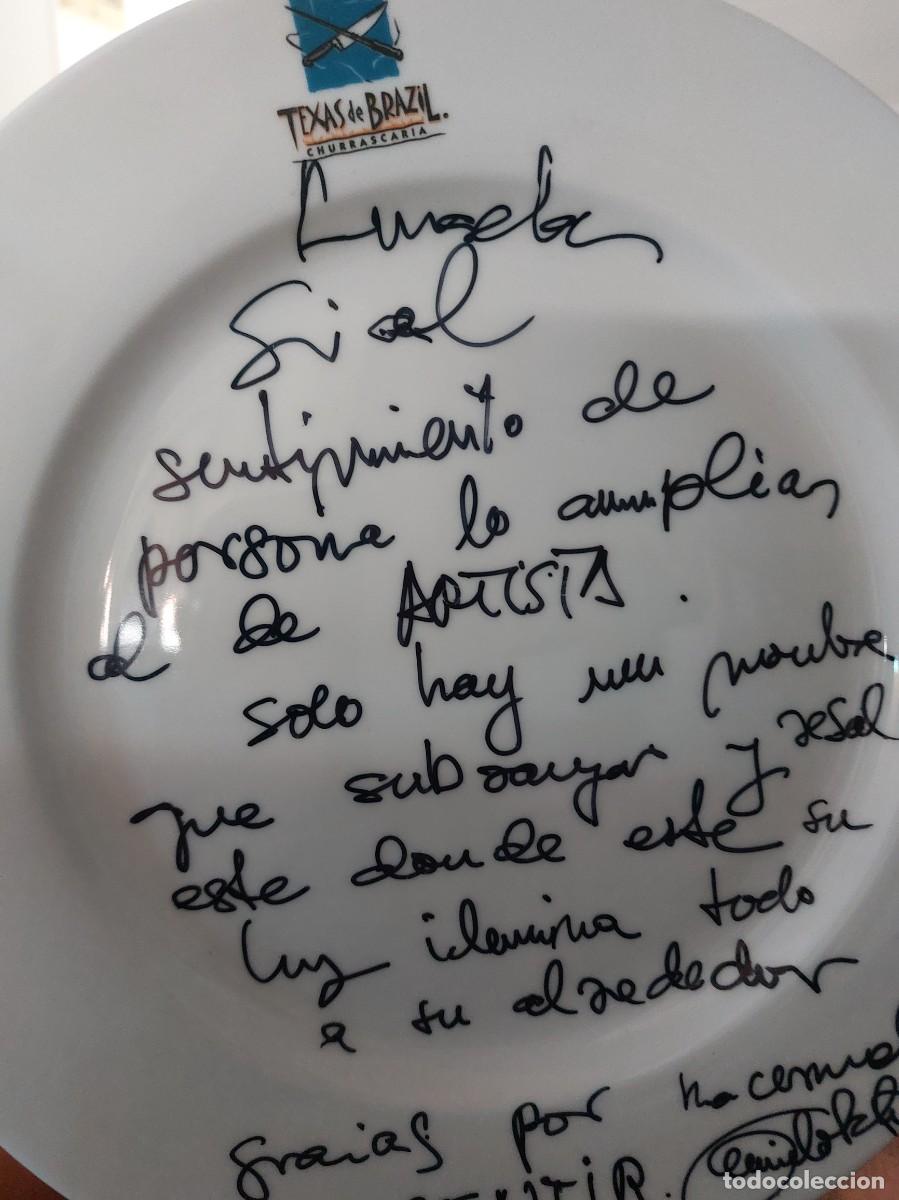 TEXAS de BRAZIL.
CHURRASCARIA
Si al
sentimiento de
persona lo amplias
al de ARTISTA.
solo hay un nombre
que subrayar y resal
este donde este su
luz ilumina todo
a su alrededor
gracias por
todocoleccion